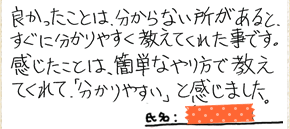 良かったことは、分からない所があると、
すぐに分かりやすく教えてくれた事です。
感じたことは、簡単なやり方で教え
てくれて、「分かりやすい」と感じました。
氏名: